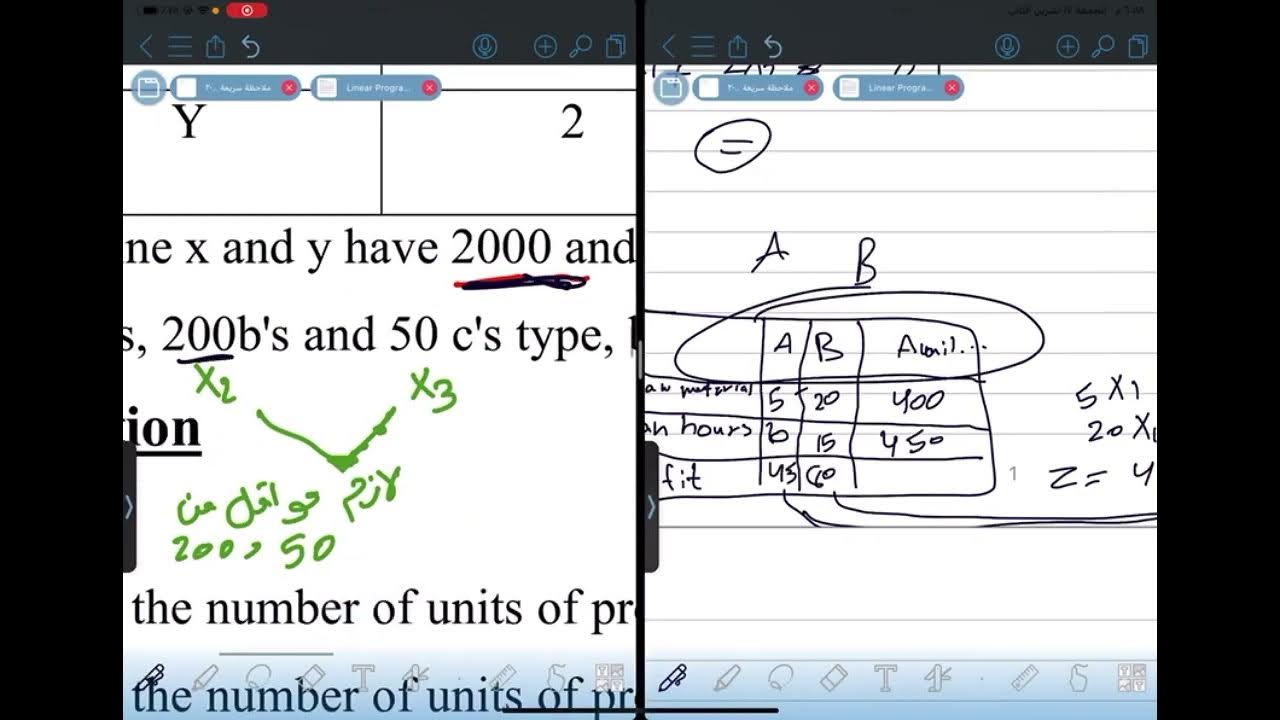 الجمعة ١٧ تشرين الثاني
ملاحظة سريعة ٢٠...
Linear Progra...
Y 2
ne x and y have 2000 and
s, 200b's and 50 c's type,
X2 X3
ion
لازم مو اقل من
200 و 50
the number of units of pro
the number of units of pro
ملاحظة سريعة ٢٠...
Linear Progra...
=
A B
A B Avail...
aw material 5 20 400
an hours 15 450
fit 45 60
5 X1
20 X
1
Z = 4